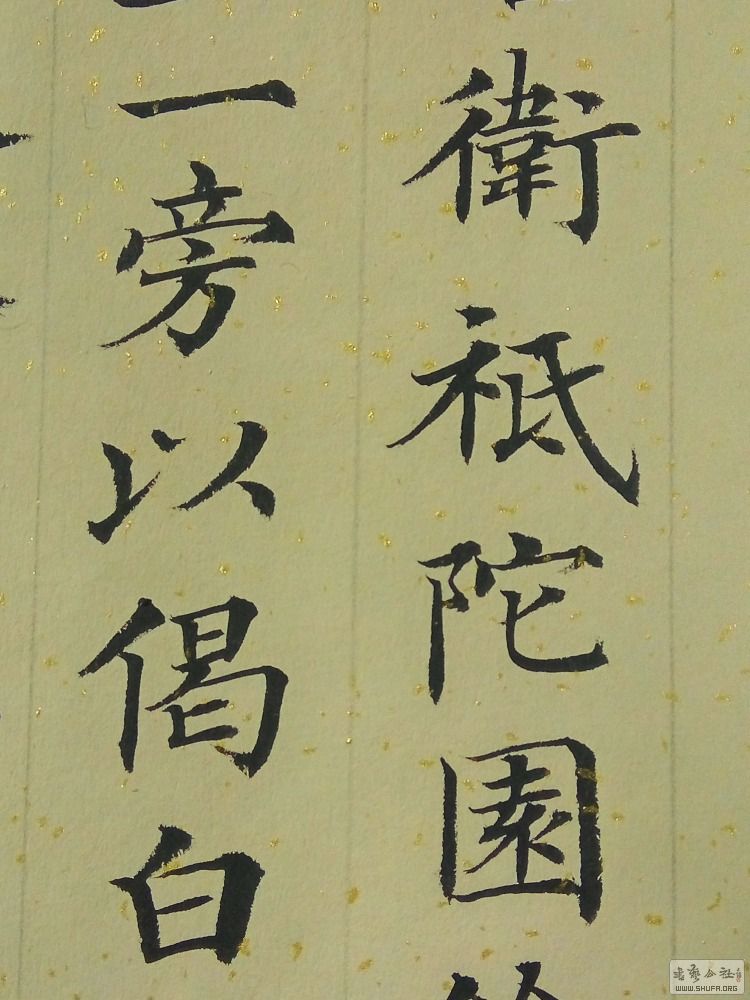 衛祇陀園
一旁以偈白
書藝公社
WWW.SHUFA.ORG